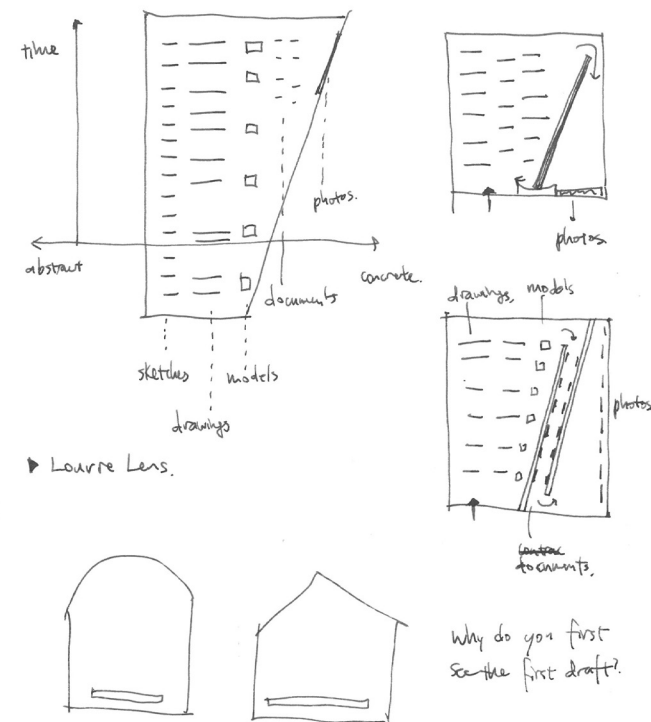 time
abstract
concrete.
photos.
documents
sketches
models
drawings
▶ Louvre Lens.
photos
drawings, models
photos
documents.
Why do you first
see the first draft?